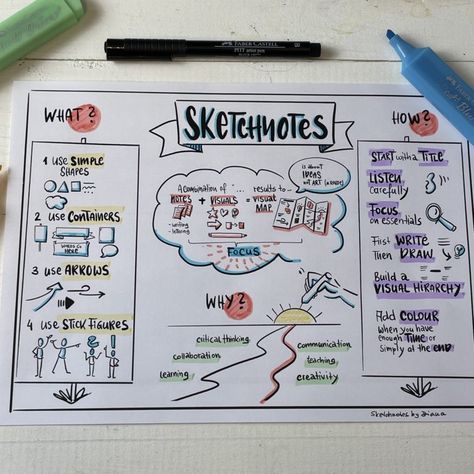 FABER-CASTELL
PITT artist pen
B
SKETCHNOTES
WHAT?
1 USE SIMPLE
SHAPES
2 USE CONTAINERS
WORDS GO
HERE
3 USE ARROWS
4 USE STICK FIGURES
A combination of ... results to ...
NOTES + VISUALS = VISUAL
MAP
- writing
- lettering
FOCUS
is about
IDEAS
not ART
WHY?
critical thinking
collaboration
learning
communication
teaching
creativity
HOW?
START with a TITLE
LISTEN
Carefully
FOCUS
on essentials
First WRITE
Then DRAW
Build a
VISUAL HIRARCHY
Add COLOUR
when you have
enough TIME or
simply at the END
Sketchnotes by Diana